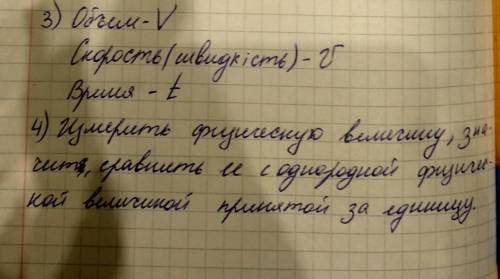 3) Объем - V
Скорость (швидкість) - υ
Время - t
4) Измерить физическую величину, зна-
чит, сравнить ее с однородной физиче-
кой величиной принятой за единицу.